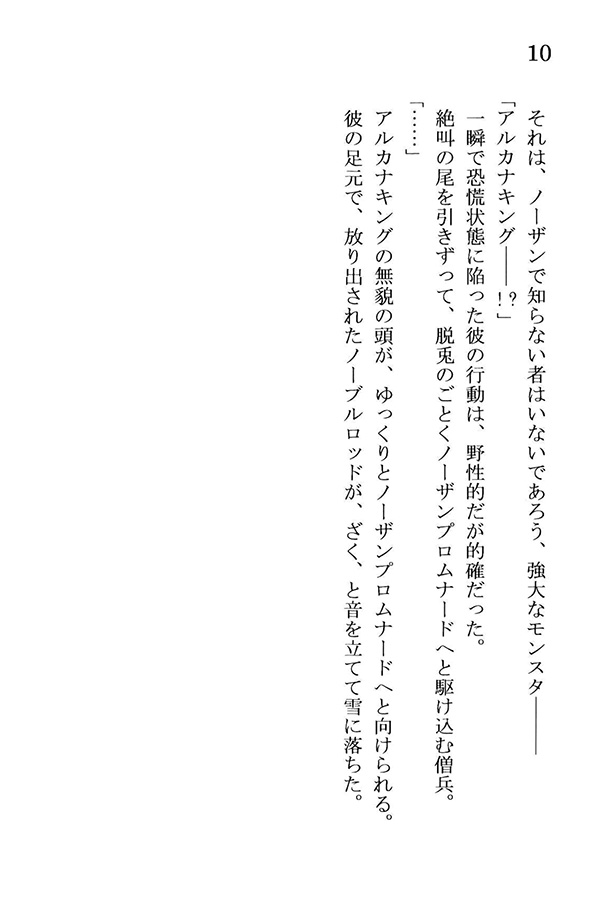 10
それは、ノーザンで知らない者はいないであろう、強大なモンスター――
「アルカナキング――!?」
一瞬で恐慌状態に陥った彼の行動は、野性的だが的確だった。
絶叫の尾を引きずって、脱兎のごとくノーザンプロムナードへと駆け込む僧兵。
「……」
アルカナキングの無貌の頭が、ゆっくりとノーザンプロムナードへと向けられる。
彼の足元で、放り出されたノーブルロッドが、ざく、と音を立てて雪に落ちた。